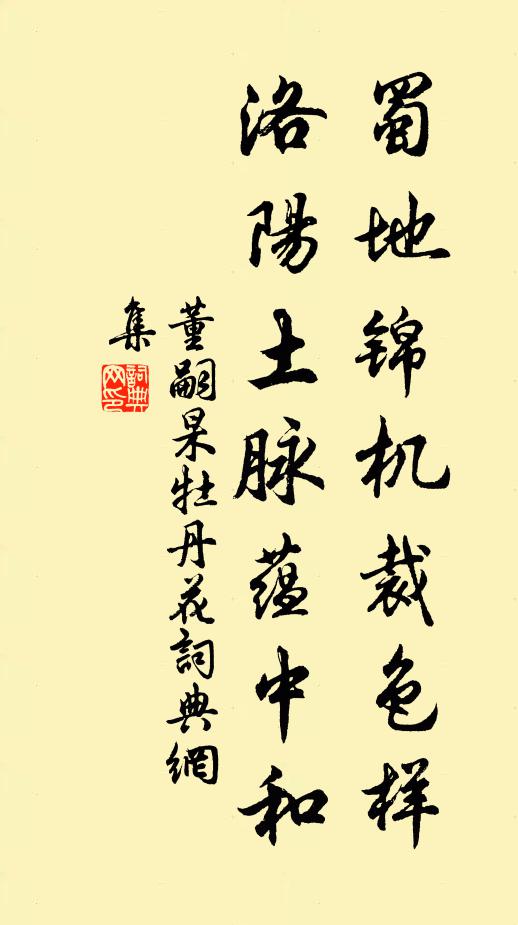 蜀地锦机裁色样
洛陽土脉蕴中和
董嗣杲牡丹花詞典網
集
詞典
网印